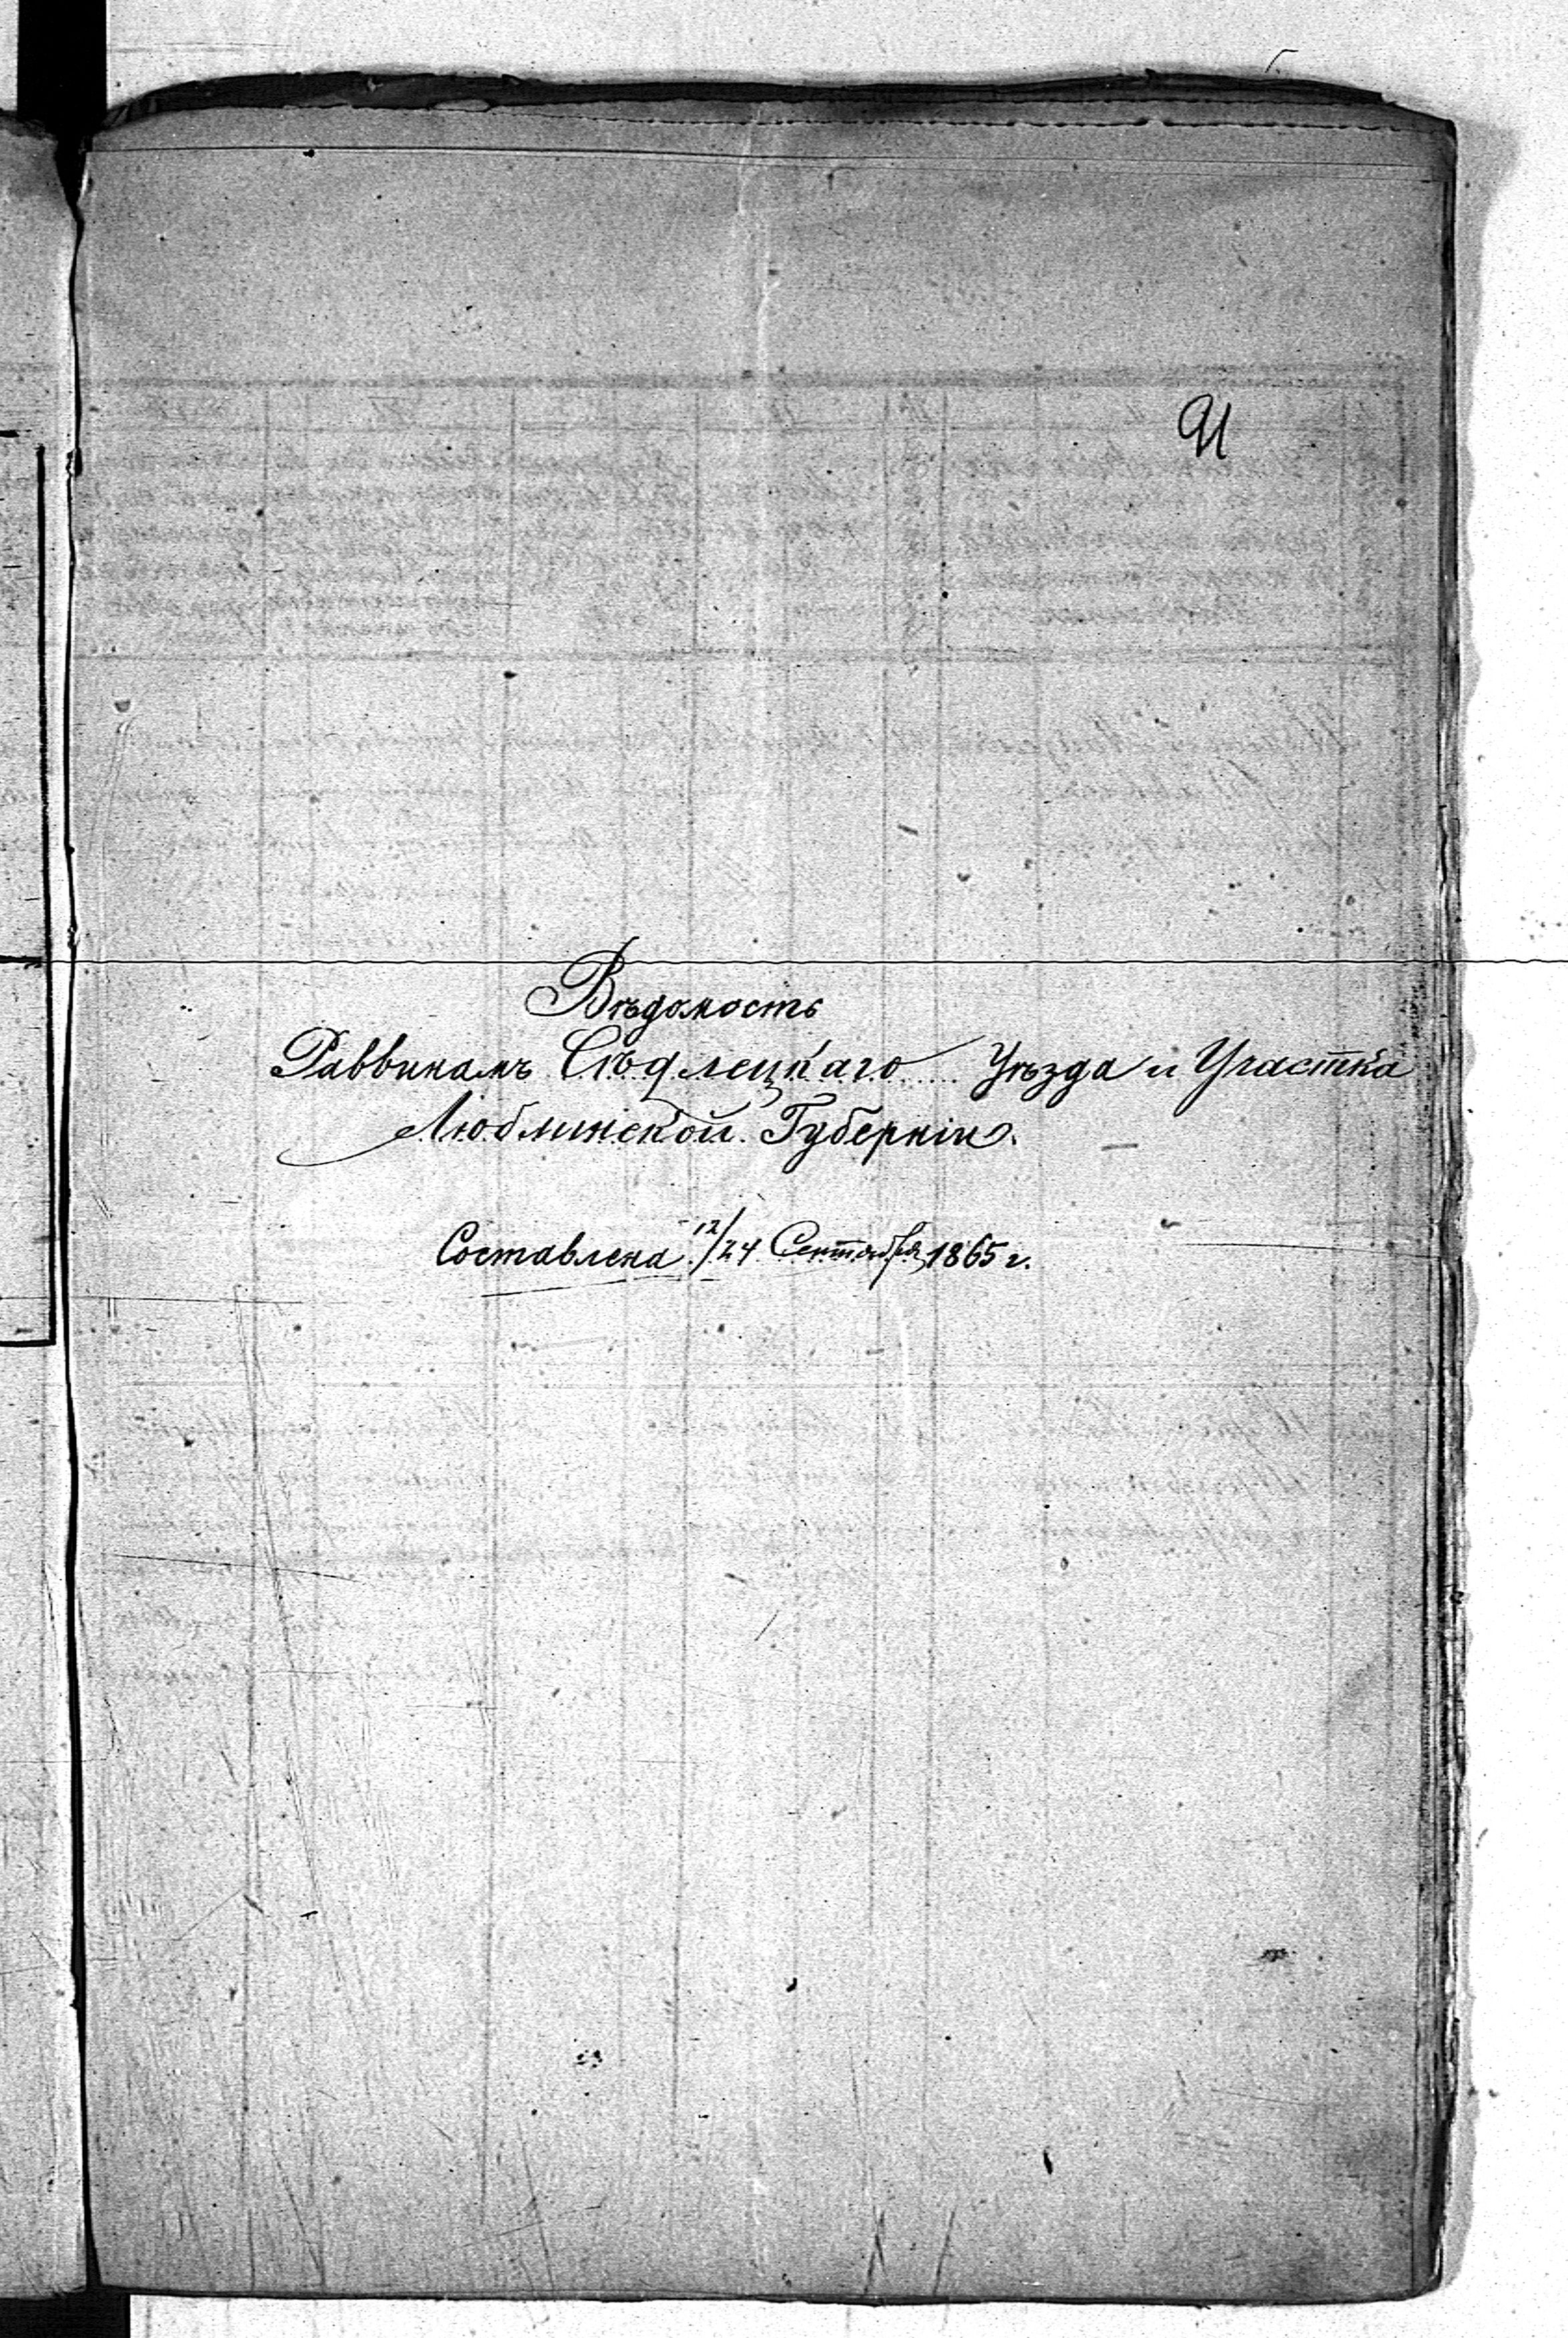 91
Вѣдомость
Раввинамъ Сѣдлецкаго Уѣзда и Участка
Люблинской Губерніи.
Составлена 12/24 Сентября 1865 г.